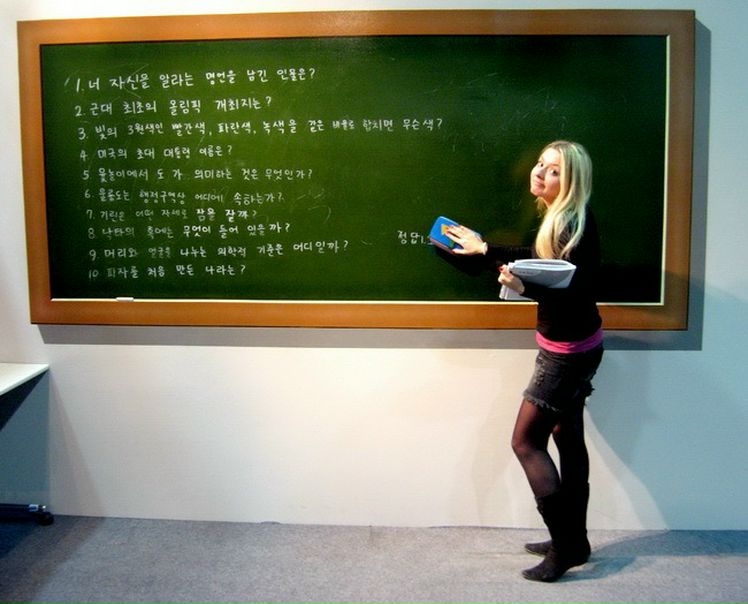 1. 너 자신을 알라는 명언을 남긴 인물은?
2. 근대 최초의 올림픽 개최지는?
3. 빛의 3원색인 빨간색, 파란색, 녹색을 같은 비율로 합치면 무슨색?
4. 미국의 초대 대통령 이름은?
5. 윷놀이에서 도 가 의미하는 것은 무엇인가?
6. 울릉도는 행정구역상 어디에 속하는가?
7. 기린은 어떤 자세로 잠을 잘까?
8. 낙타의 혹에는 무엇이 들어 있을까?
정답1.
9. 머리와 얼굴을 나누는 의학적 기준은 어디일까?
10 피자를 처음 만든 나라는?